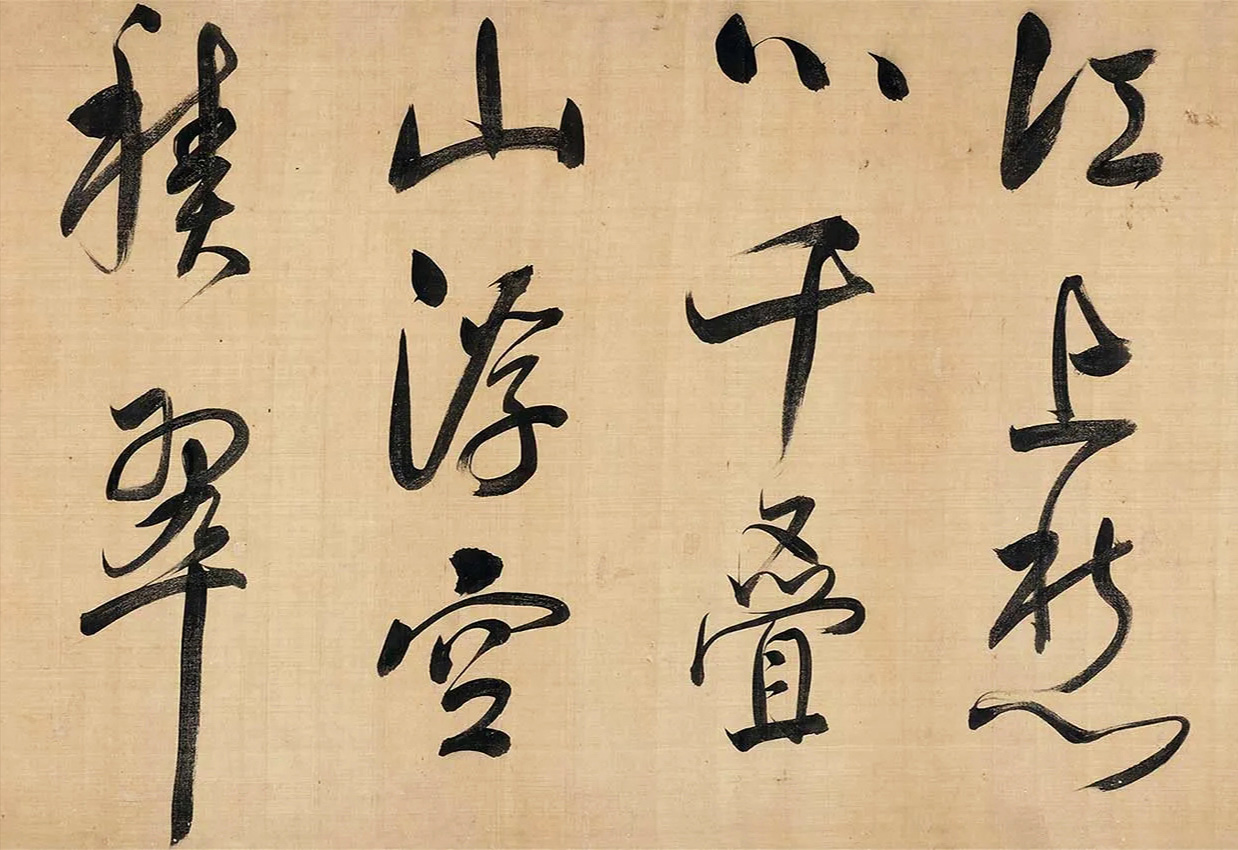 江上愁
心千叠
山浮空
积翠